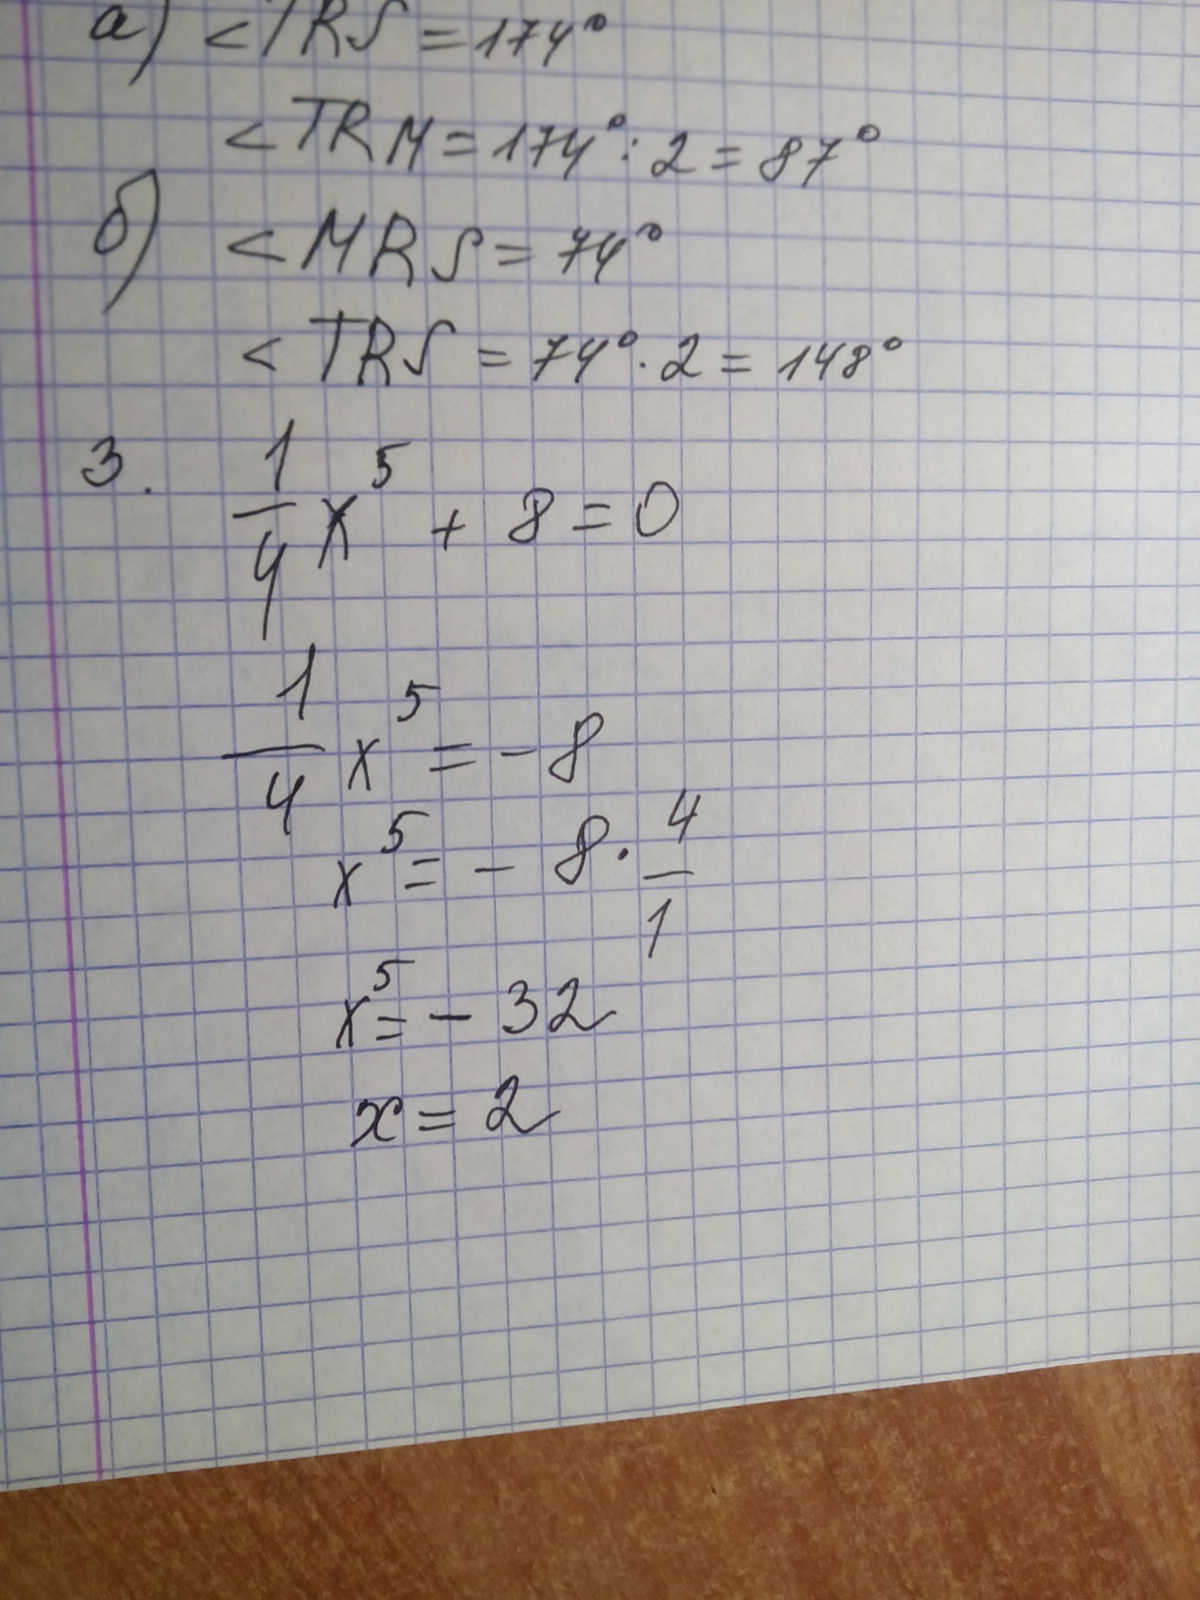 а) <TRS = 174°
<TRM = 174° : 2 = 87°
б) <MRS = 74°
<TRS = 74° · 2 = 148°
3. 1/4 x⁵ + 8 = 0
1/4 x⁵ = - 8
x⁵ = - 8 · 4/1
x⁵ = - 32
x = 2